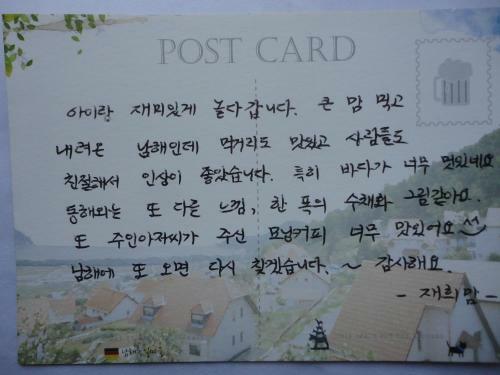 POST CARD
아이랑 재미있게 놀다 갑니다. 큰 맘 먹고
내려온 남해인데 먹거리도 맛있고 사람들도
친절해서 인상이 좋았습니다. 특히 바다가 너무 멋있네요
동해와는 또 다른 느낌, 한 폭의 수채화 그림같아요.
또 주인아저씨가 주신 모닝커피 너무 맛있어요
남해에 또 오면 다시 찾겠습니다. ~ 감사해요.
- 재희맘 -
남해